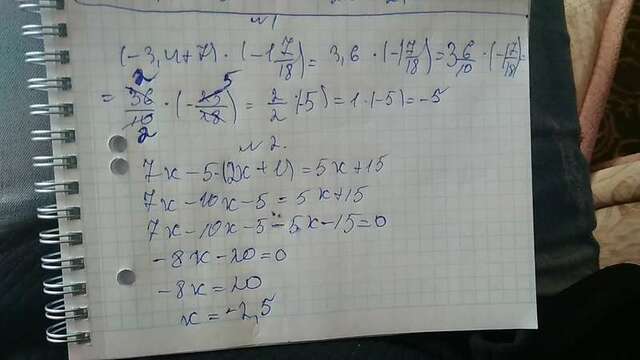 N1
(-3,4+7) · (-1 7/18) = 3,6 · (-1 7/18) = 3 6/10 · (-1 7/18) =
= 36/10 · (-25/18) = 2/2 · (-5) = 1 · (-5) = -5
N2.
7x - 5 · (2x + 1) = 5x + 15
7x - 10x - 5 = 5x + 15
7x - 10x - 5 - 5x - 15 = 0
-8x - 20 = 0
-8x = 20
x = -2,5